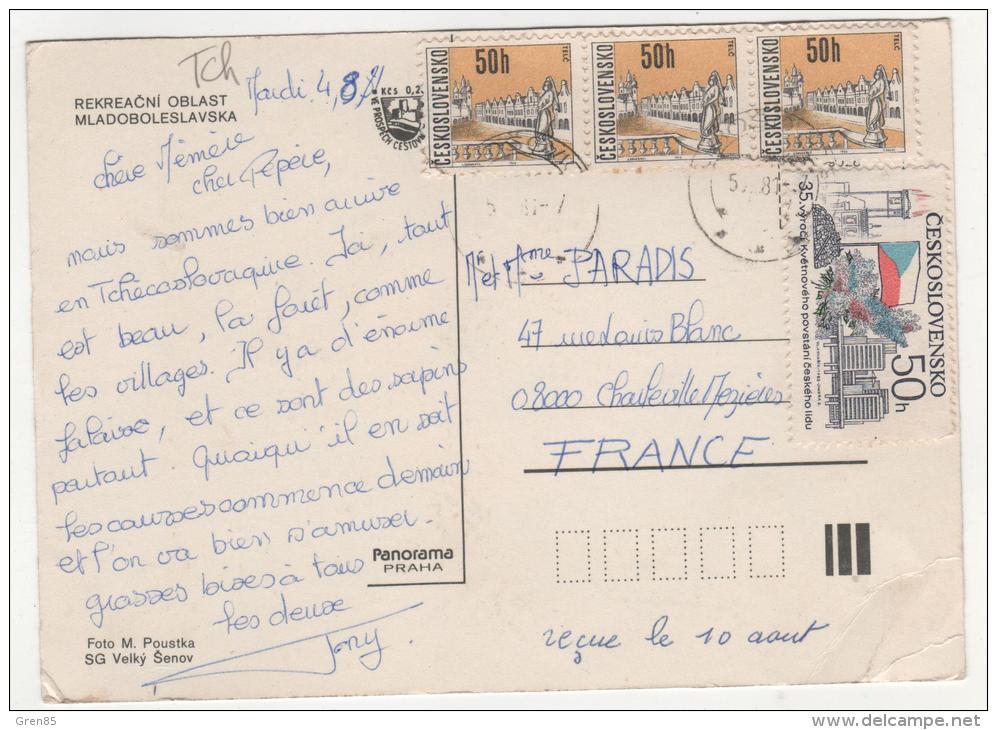 Tch
Mardi 4.8.81
REKREAČNÍ OBLAST
MLADOBOLESLAVSKA
chère Mémère
cher Pépère,
nous sommes bien arrivé
en Tchécoslovaquie. Ici, tout
est beau, la forêt, comme
les villages. Il y a d'énorme
falaise, et ce sont des sapins
partout. Quoiqu'il en soit
les courses commence demain
et l'on va bien s'amuser.
grosses bises à tous
les deux
Tony.
Panorama
PRAHA
Foto M. Poustka
SG Velký Šenov
Kčs 0,2
VE PROSPĚCH CESTOVN
ČESKOSLOVENSKO
50h
TELČ
ČESKOSLOVENSKO
50h
TELČ
ČESKOSLOVENSKO
50h
TELČ
ČESKOSLOVENSKO
50h
35. výročí Květnového povstání českého lidu
81-7
M et Mme PARADIS
47 rue Louis Blanc
08000 Charleville Mezières
FRANCE
reçue le 10 aout
Gren85
www.delcampe.net